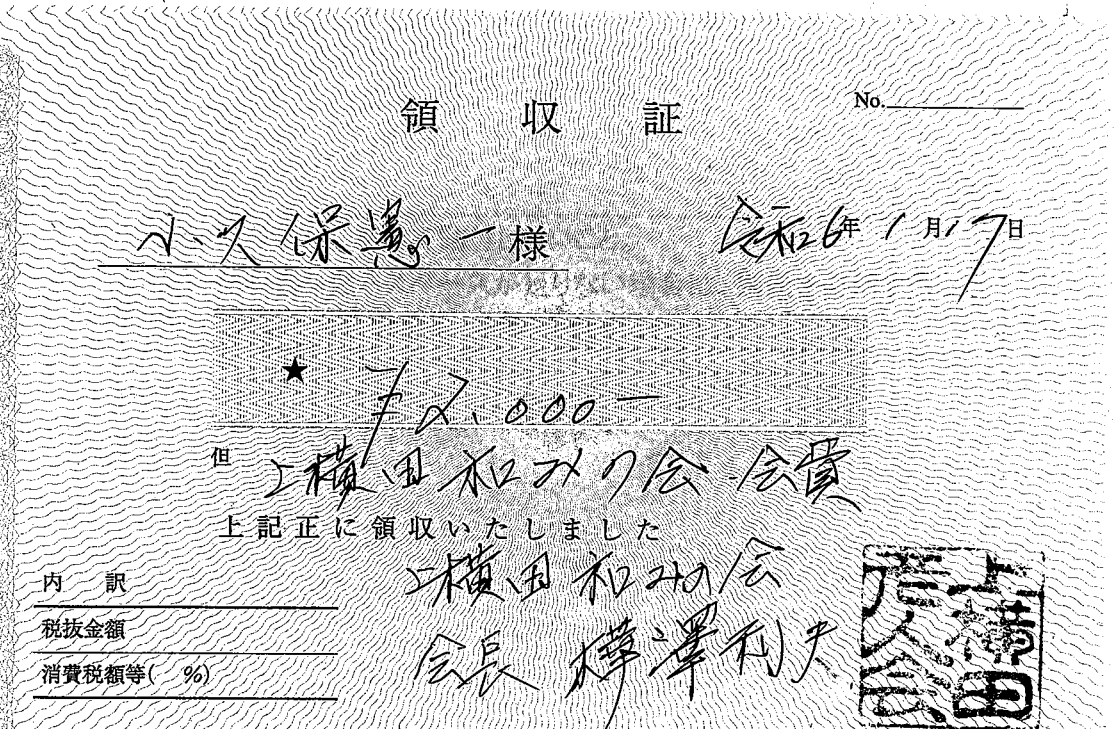 領収証
No.
小久保憲一様
令和6年1月17日
★
¥2,000-
但 上横田和みの会 会費
上記正に領収いたしました
上横田和みの会
会長 樺澤利夫
内訳
税抜金額
消費税額等( %)
上横田
会